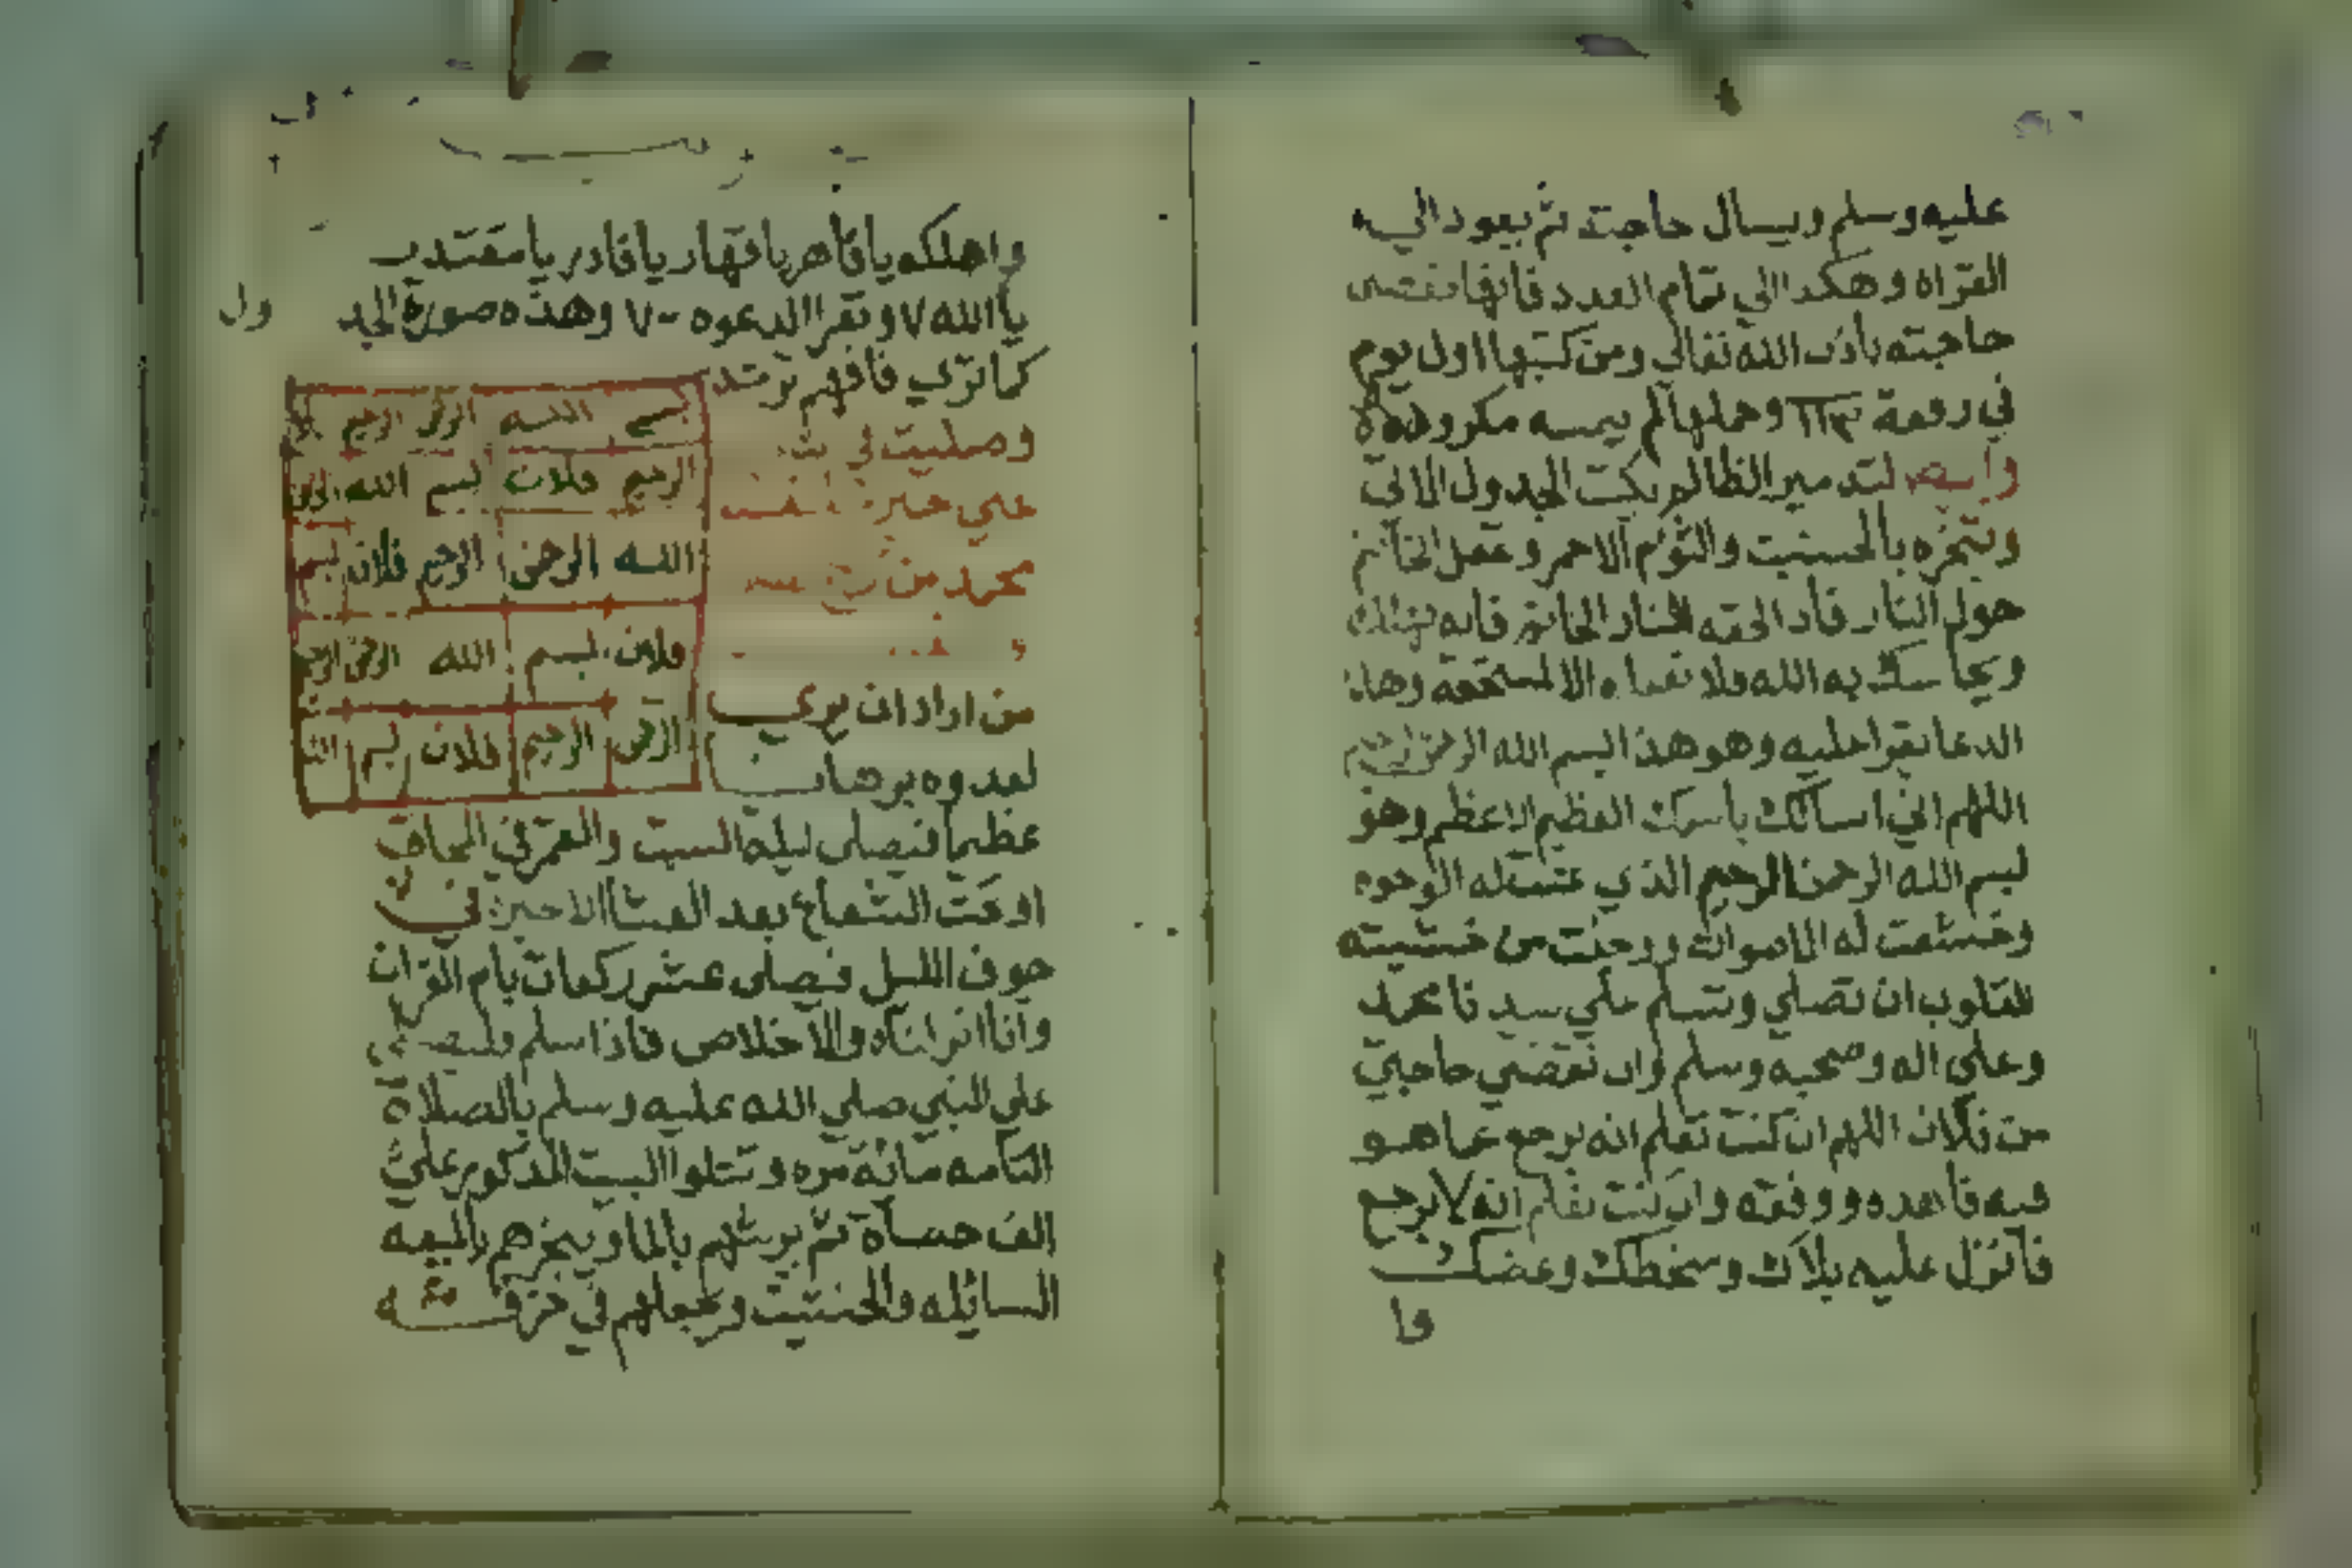 عليه وسلم ويسال حاجته ثم يعود الي
القراه وهكدا الي تمام العدد فانها تقضى
حاجته باذن الله تعالى ومن كتبها اول يوم
في رقعة ٦٦٣ وحملها لم يمسه مكروه
وايضا لتدمير الظالم يكتب الجدول الاتي
وتبخره بالحسنيت والثوم الاحمر وعمل الخاتم
حول النار فاد الحقه النار الخاتم فانه يهلك
ويحاسبك به الله فلا تفعله الا لمستحقه وهذا
الدعا تقرا عليه وهو هذا بسم الله الرحمن الرحيم
اللهم اني اسالك باسمك العظيم الاعظم وهو
بسم الله الرحمن الرحيم الذي عنت له الوجوه
وخشعت له الاصوات ووجلت من خشيته
القلوب ان تصلي وتسلم علي سيدنا محمد
وعلى اله وصحبه وسلم وان تقضي حاجتي
من فلان اللهم ان كنت تعلم انه يرجع عما هو
فيه فاهده ووفقه وان كنت تعلم انه لا يرجع
فانزل عليه بلاك وسخطك وغضبك
وا
واهلكه يا قاهر يا قهار يا قادر يا مقتدر
يا الله ٧ وتقرا الدعوه ٧٠ وهذه صورة الجد ول
كما تري فافهم ترشد
بسم الله الرحمن الرحيم
الرحيم فلان بسم الله الرحمن
الله الرحمن الرحيم فلان بسم
فلان بسم الله الرحمن الرحيم
الرحمن الرحيم فلان بسم الله
وصليت
علي خير
محمد من
من اراد ان يري
لعدوه برهانا
عظيما فيصلى ليلة السبت والقمر في المحاق
او تحت الشعاع بعد العشا الاخيرة في
جوف الليل فيصلى عشر ركعات بام القران
وانا انزلناه والاخلاص فاذا سلم فليصلي
على النبي صلي الله عليه وسلم بالصلاة
التامه مائة مره وتتلوا البيت المذكور علي
الف حساة ثم يرشهم بالماء ويبخرهم بالميعه
السائله والحنتيت ويجعلهم في خرقة